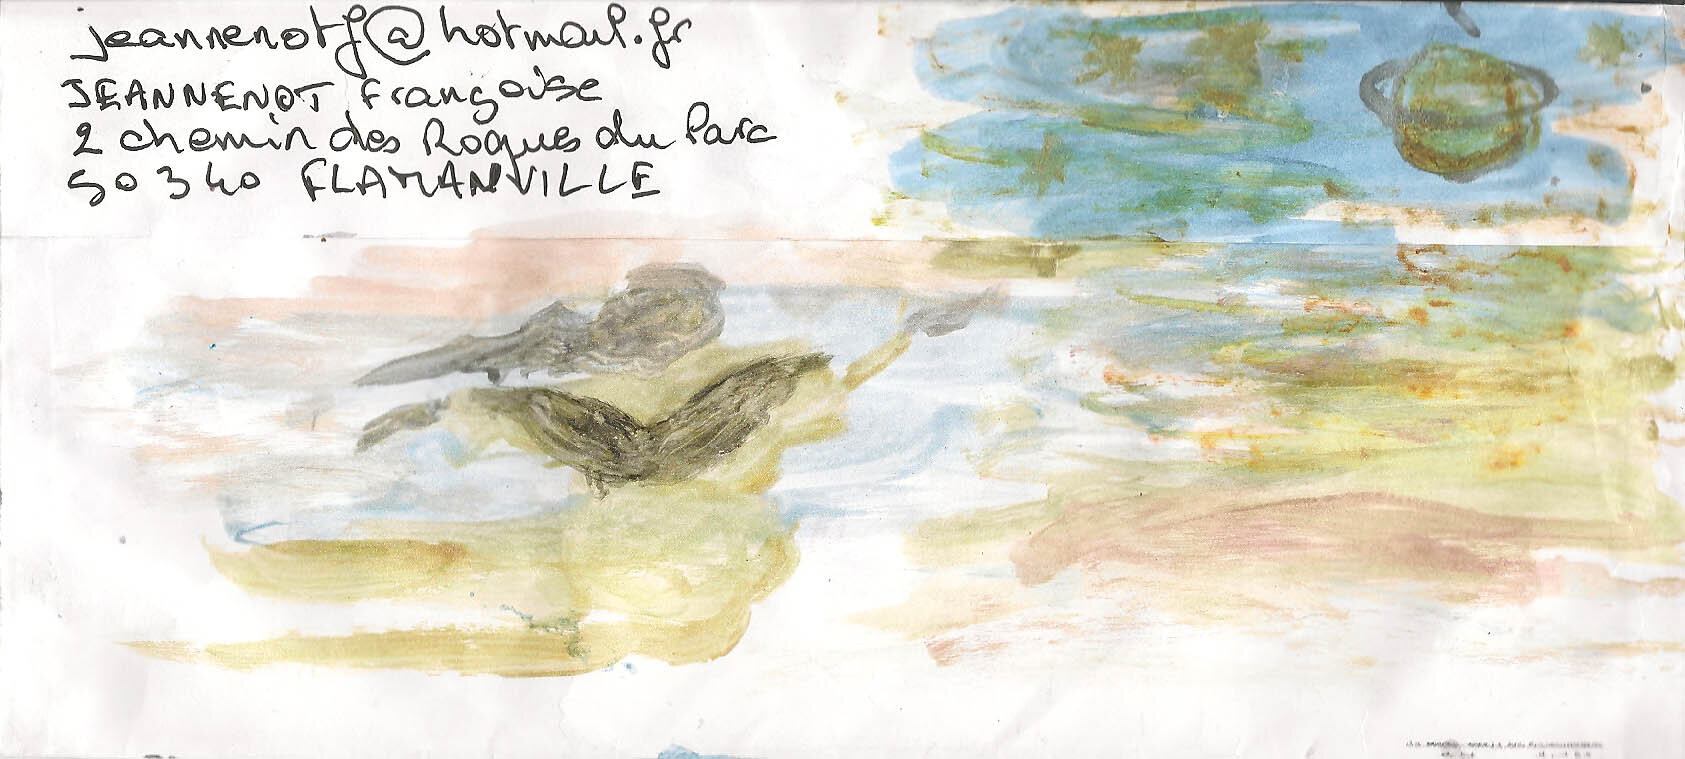 jeannenotf@hotmail.fr
JEANNENOT Françoise
2 chemin des Roques du Parc
50340 FLAMANVILLE